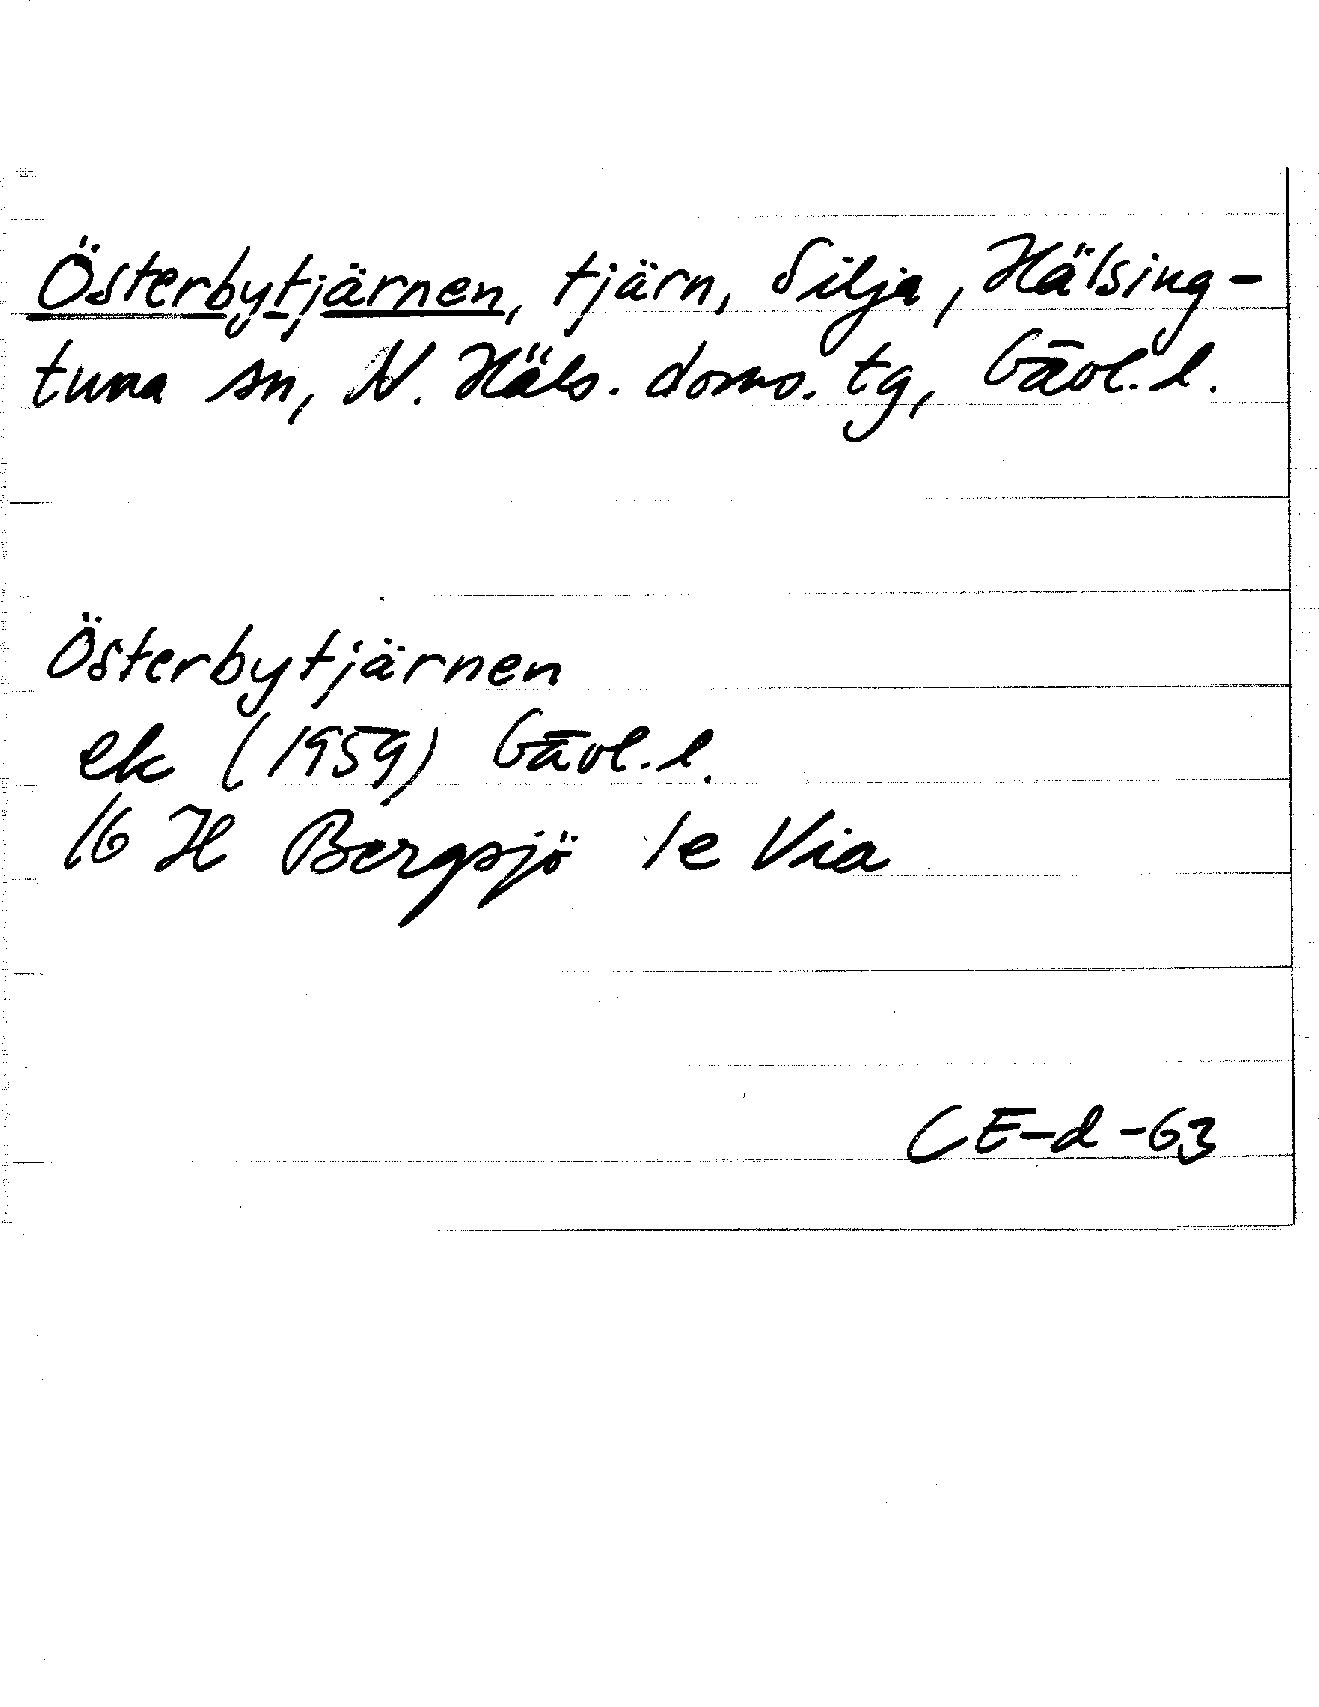 Österbytjärnen, tjärn, Silja, Hälsing-
tuna sn, N. Häls. doms. tg, Gävl. l.
Österbytjärnen
ek (1959) Gävl. l.
16 H Bergsjö 1e Via
CE-d-63